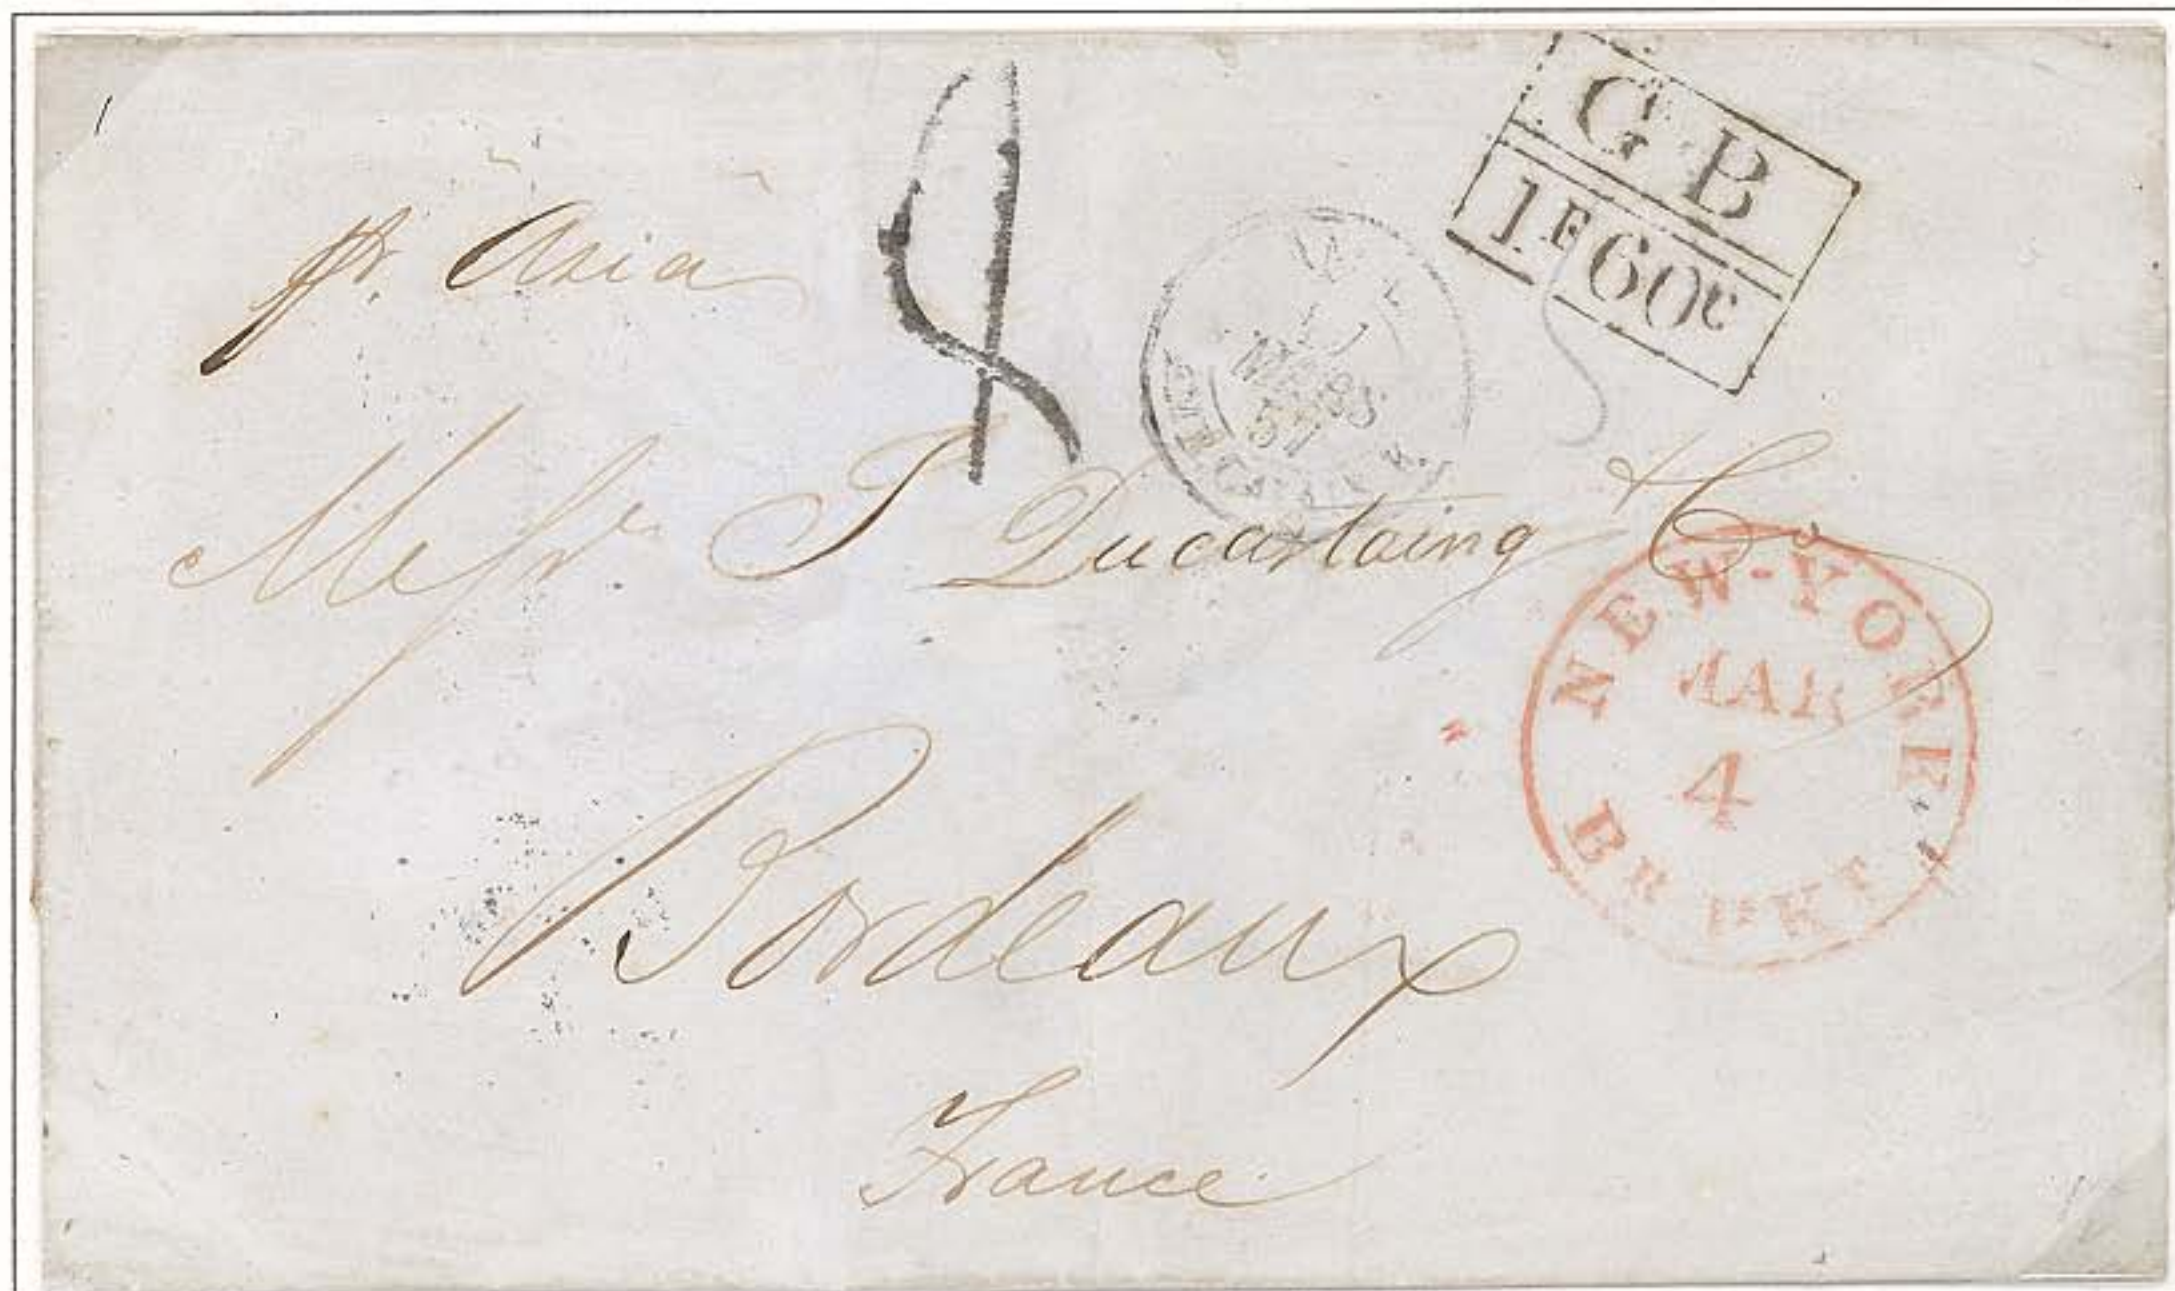 pr. Asia
8
G B
1F60c
MARS
57
Messrs J Ducastaing & Co
NEW-YORK
MAR
4
BR PKT
Bordeaux
France